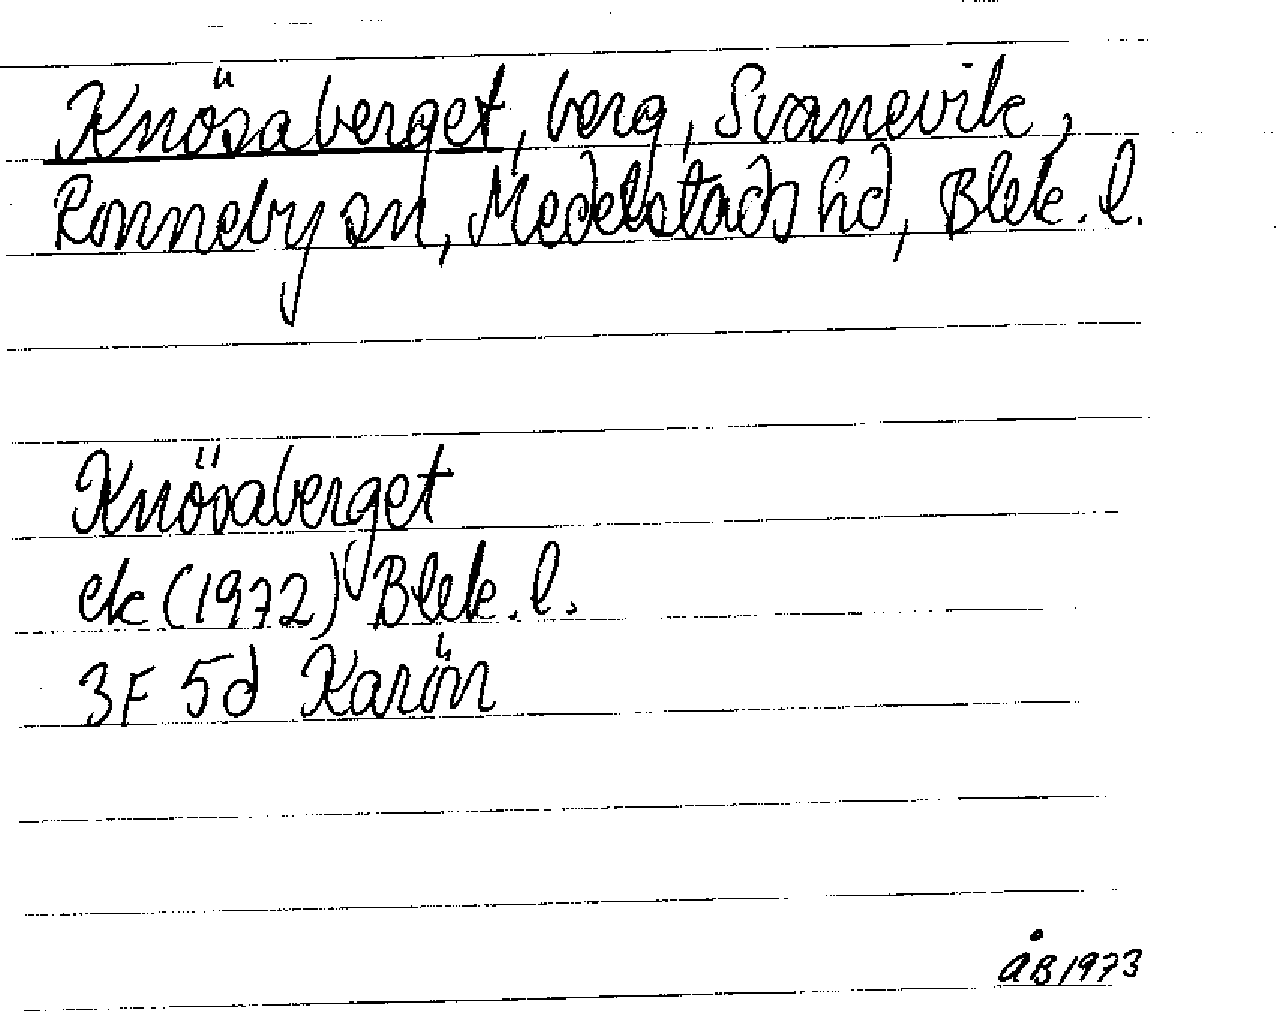 Knösaberget, berg, Svanevik,
Ronneby sn, Medelstads hd, Blek. l.
Knösaberget
ek (1972) Blek. l.
3F 5d Karön
ÅB 1973